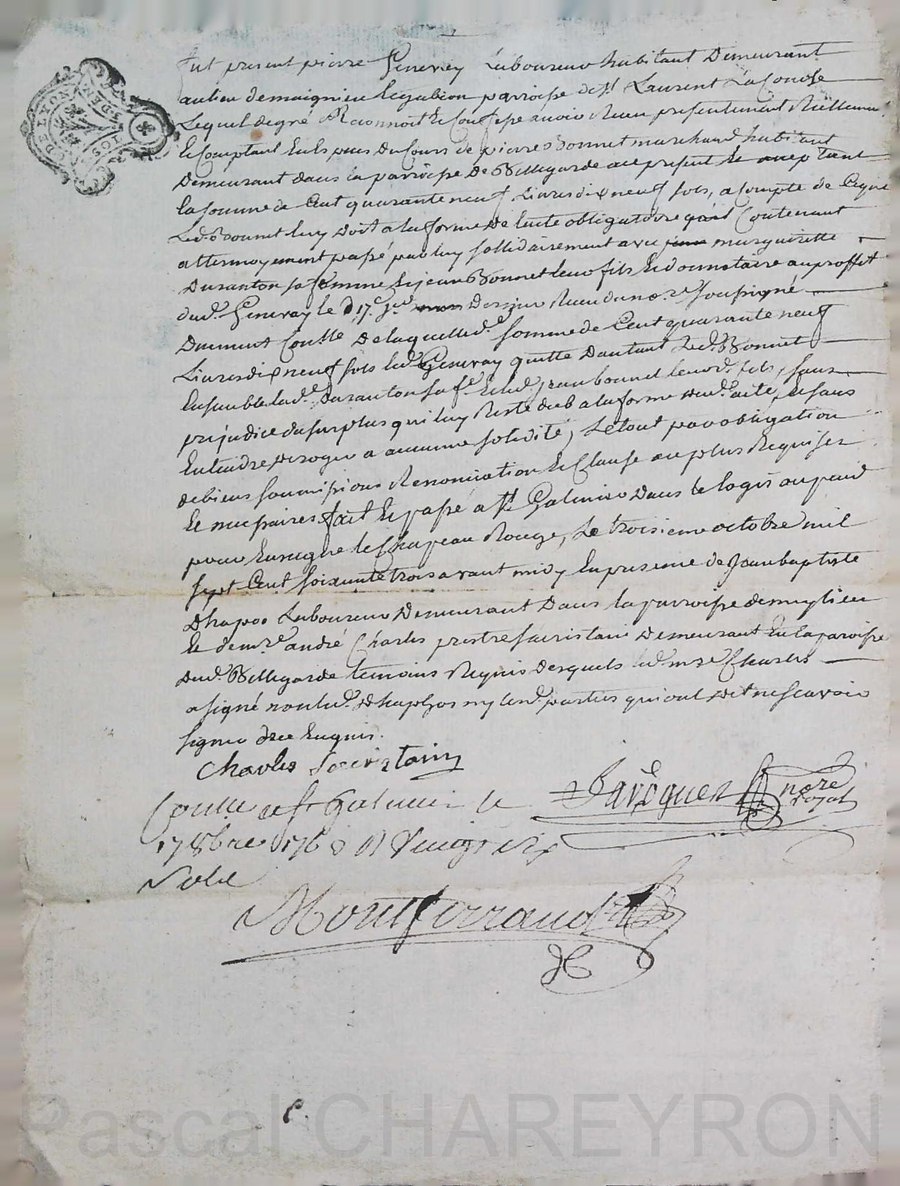 fut present pierre Genevey Laboureur habitant Demeurant
au lieu de parroisse de st Laurent La Conche
Lequel de gré Reconnoit et Confesse avoir Receu presentement Reellement
et Comptant En Especes Du Cours de pierre Bonnet marchand habitant
Demeurant dans la parroisse De Bellegarde au present et acceptant
la somme de Cent quarante neuf Livres dix neuf sols, a Compte de Ce que
Led. Bonnet luy Doit a la forme De lacte obligatoire Contenant
attermoyement passé par luy sollidairement avec margueritte
Duranton sa femme Et jean Bonnet leur fils Et donnataire au proffit
dud. Genevay le 17e Dernier Receu du nore soussigné
Duement Contlé De laquelle d. somme de Cent quarante neuf
Livres dix neuf sols led. Genevay quitte Dautant Led. Bonnet
Ensemble lad. Duranton sa fe Et led. jean bonnet leur d. fils, sans
préjudice du surplus qui luy Reste deub a la forme dud. acte, Et sans
Entendre deroger a aucune solidité, Le tout par obligation
de biens soumissions Renonciation Et Clause au plus Requises
Et necessaires fait Et passé a st Galmier Dans le logis au pend
pour Enseigne le Chapeau Rouge, Le troisieme octobre mil
sept Cent soixante trois avant midy En presence de Jean baptiste
Laboureur Demeurant Dans la parroisse de
Et de mre andré Charles prestre sacristain Demeurant En la parroisse
dud. Bellegarde temoins Requis Desquels led. mre Charles
a signé non led. ny lesd. parties qui ont Dit ne scavoir
signer De ce Enquis.
Charles Sacristain
Jacquet nore royal
Contlé a st Galmier le
17 8bre 1763
sols
Montferrand
Pascal CHAREYRON